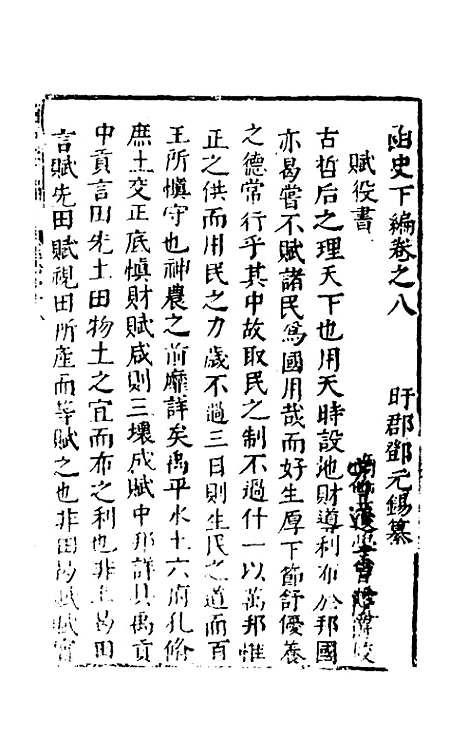 函史下編卷之八　旴郡鄧元錫纂
賦役書
古哲后之理天下也用天時設地財導利布於邦國
亦曷嘗不賦諸民爲國用哉而好生厚下節舒優養
之德常行乎其中故取民之制不過什一以萬邦惟
正之供而用民之力歲不過三日則生民之道而百
王所愼守也神農之前靡詳矣禹平水土六府孔脩
庶土交正底愼財賦咸則三壤成賦中邦詳具禹貢
中貢言田先土田物土之宜而布之利也非土曷田
言賦先田賦視田所産而等賦之也非田曷賦賦實